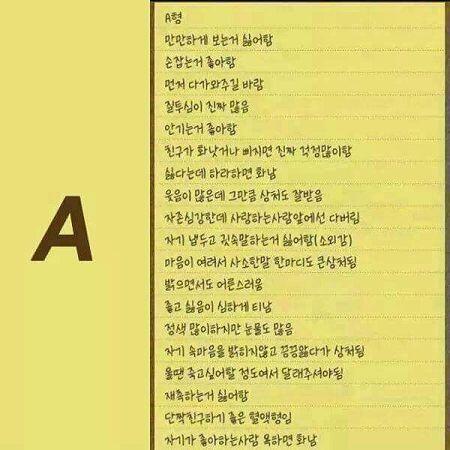 A
A형
만만하게 보는거 싫어함
손잡는거 좋아함
먼저 다가와주길 바람
질투심이 진짜 많음
안기는거 좋아함
친구가 화낫거나 삐지면 진짜 걱정많이함
싫다는데 하라하면 화남
웃음이 많은데 그만큼 상처도 잘받음
자존심강한데 사랑하는사람앞에선 다버림
자기 냅두고 귓속말하는거 싫어함(소외감)
마음이 여려서 사소한말 한마디도 큰상처됨
밝으면서도 어른스러움
좋고 싫음이 심하게 티남
정색 많이하지만 눈물도 많음
자기 속마음을 밝히지않고 끙끙앓다가 상처됨
울땐 죽고싶어할 정도여서 달래주셔야됨
재촉하는거 싫어함
단짝친구하기 좋은 혈액형임
자기가 좋아하는사람 욕하면 화남